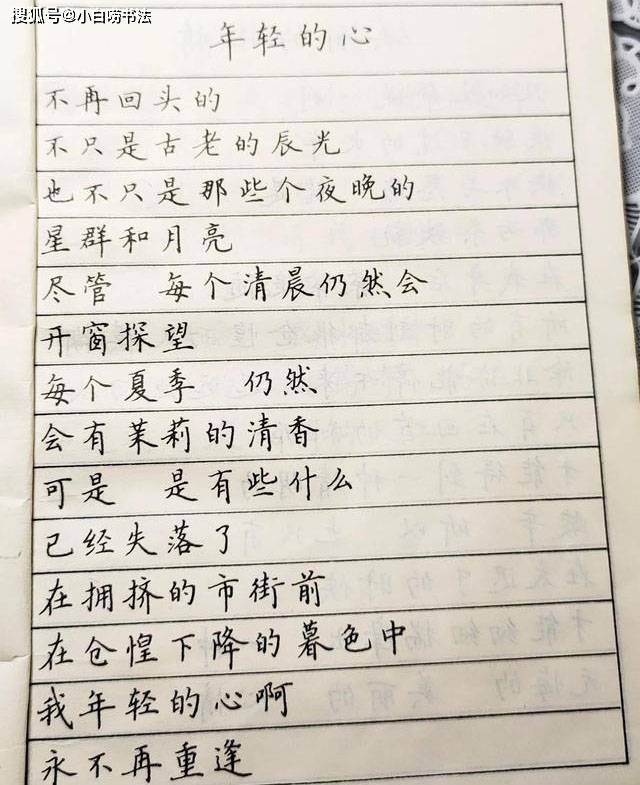 搜狐号@小白唠书法
年轻的心
不再回头的
不只是古老的辰光
也不只是那些个夜晚的
星群和月亮
尽管 每个清晨仍然会
开窗探望
每个夏季 仍然
会有茉莉的清香
可是 是有些什么
已经失落了
在拥挤的市街前
在仓惶下降的暮色中
我年轻的心啊
永不再重逢